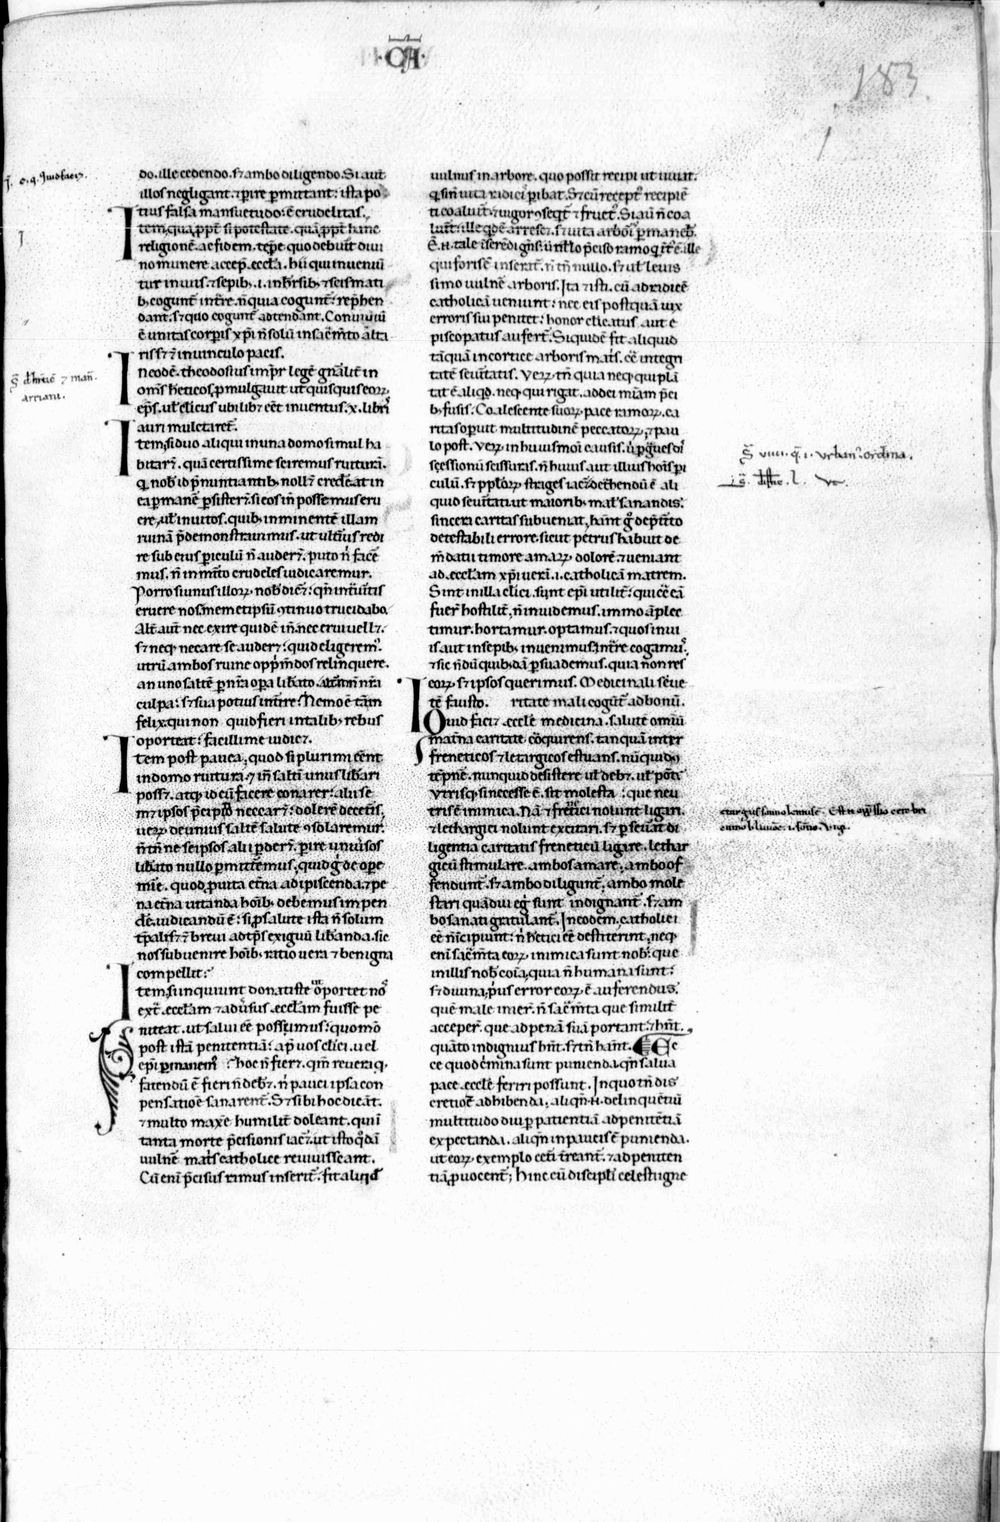 ·CA·
183
do. ille cedendo. sꝫ ambo diligendo. Si aut̄
illos negligant. ⁊ ꝑire ꝑmittant: ista po
tius falsa mansuetudo. ē crudelitas.
Item, qua ꝓpt̄ si potestate. quā ꝓpt̄ hanc
religionē. ac fidem. tēpr̄e quo debuit diui
no munere accep. ecclā. hii qui inueniū
tur in uiis. ⁊ sepib;. i. in hr̄sib; ⁊ scismati
b; cogunt̄ intr̄e. ñ quia cogunt̄: rep̄hen
dant̄. sꝫ quo cogunt̄ adtendant. Conuiuiū
ē unitas corꝑis xp̄i ñ solū in sac̄m̄to alta
ris sꝫ ⁊ in uinculo pacis.
In eodē. theodosius imp̄r legē gn̄alit̄ in
om̄s h̄eticos, ꝓmulgauit ut quisquis eoꝝ
ep̄s. ul̄ clicus ubilib; eēt inuentus. x. libr̄
auri mulctaret̄.
Item, si duo aliqui in una domo simul ha
bitarꝫ. quā certissime sciremus ruiturā.
q; nob̓ id p̄nuntiantib; nollꝫ credē. at in
ea ꝑmanē ꝑsisterꝫ. si eos in̄ possemus eru
ere, ul̄ inuitos. quib; inminentē illam
ruinā p̄demonstrauimus. ut ult̄ius redi
re sub eius ꝑiculū ñ auderꝫ. puto ñ facē
mus. ñ in m̄ito crudeles iudicaremur.
Porro si unus illoꝝ nob̓ dicꝫ: qñ int̄uitis
eruere nos. memetipsū ꝯtinuo trucidabo.
Alt̄ aut̄ nec exire quidē in̄. nec erui uellꝫ.
sꝫ neq; necare se auderꝫ: quid eligerem̄.
utrū ambos ruine opp̄m̄dos relinquere.
an uno saltē ꝑ nr̄a opa lib̓ato alt̄um ñ nr̄a
culpa: sꝫ sua potius int̄ire. Nemo ē tām
felix. qui non quid fieri in talib; rebus
oporteat: facillime iudicꝫ.
Item post pauca, quod si plurimi eēnt
in domo ruitura, ⁊ in̄ saltī unus lib̓ari
possꝫ, atq; id cū facere conarer: alii se
m̄ꝫ ipsos p̄cipitio necarꝫ: dolorē de cet̄is,
ueꝝ de unius saltē salute ꝯsolaremur.
ñ tn̄ ne se ipsos alii ꝑderꝫ. ꝑire uniusos
lib̓ato nullo ꝑmitt̄emus, quid g̓ de ope
mīe. quod, ꝓ uita et̄na adipiscenda. ⁊ pe
na et̄na uitanda hoīb; debemus impen
dē̄. iudicandū ē: si, ꝓ salute ista ñ solum
tp̄ali, sꝫ ⁊ breui ad tp̄s exiguū lib̓anda. sic
nos subuenire hoīb; ratio uera ⁊ benigna
compellit:
Item, si inquiunt donatiste oportet nos
ext̄. ecclam ⁊ aduersus. ecclam fuisse pe
niteat. ut salui eē possimus: quomō
post istā penitentiā: ap̄ uos clici. uel
epī ꝑmanem̄? hoc ñ fierꝫ. qm̄ reuera q;
fatendū ē fieri ñ debꝫ. ñ pauci ipsa con
pensatioē sanarent̄. Sꝫ sibi hoc dicāt.
⁊ multo maxīe humilit̄ doleant. qui in
tanta morte p̄cisionis iacꝫ. ut isto q̄dā
uulnē mat̄s catholice reuiuiscant.
Cū enī p̄cisus rimus inserit̄. fit aliud
uulnus in arbore. quo possit recipi ut uiuat.
q; sin̄ uita radici ꝑibat. Sꝫ cū recept̄ recipiē
ti coaluit̄: ⁊ uigor ꝯseqt̄ ⁊ fruct̄. Si aū ñ coa
luit̄: ille q̄dē arescꝫ. sꝫ uita arboī ꝑmaneb̓.
qui foris ē inserat̄. ñ tn̄ nullo. sꝫ ul̄ leuis
simo uulnē arboris. Ita ⁊ isti. cū ad radicē
catholicā ueniunt: nec eis postquā uix
erroris sui penitet: honor clicatus aut e
piscopatus aufert̄. Siquidē fit aliquid
tāquā in cortice arboris mat̄s. cō̄ integri
tatē seuitatis. Veꝝ tn̄ quia neq; qui plā
tat ē aliqd̓. neq; qui rigat. ad dei miam p̄ci
b; fusis. Coalescente suoꝝ pace ramoꝝ. ca
ritas opuit multitudinē peccatoꝝ, ⁊ pau
lo post. Veꝝ in huiusmoī causis. ū p̄ graues di
sęcssionū scissuras. ñ huius aut illius hoīs ꝑi
culū. sꝫ ppl̄oꝝ strages iacꝫ. detrhendū ē ali
quid seuitati. ut maiorib; mal̄ sanandis.
sincera caritas subueniat, hānt g̓ de p̄tito
detestabili errore. sicut petrus habuit de
m̄datii timore amaꝝ dolorē. ⁊ ueniant
ad. ecclam xp̄i uerā. i. catholicā matrem.
Sint in illa clici. sint ep̄i utilit̄: qui cē eā
fuer̄ hostilit̄, ñ inuidemus. immo āplec
timur. hortamur. optamus. ⁊ quos in ui
is aut in sepib; inuenimus. intr̄e cogam̄,
⁊ sic n̄dū quib;dā ꝑsuademus. quia ñ nos res
eoꝝ. sꝫ ipsos querimus. Medicinali seue
tē fausto. ritate mali cogunt̄ ad bonū.
Quid facit eccle medicina. salutē omiū
mat̄na caritate cōquirens. tanquā inter
freneticos ⁊ letargicos estuans. nū quid ꝯ
tēpnē. nunquid desistere ul̄ debꝫ. ul̄ potē
Vtrisq; sit necesse ē. sit molesta: que neu
tris ē inimica. Nā ⁊ frētici nolunt ligari.
⁊ lethargici nolunt excitari. sꝫ ꝑseuat di
ligentia caritatis freneticū ligare. lethar
gicū stimulare. ambos amare, ambo of
fendunt̄. sꝫ ambo diligunt̄, ambo mole
stari quādiu egr̄ sunt indignant̄. sꝫ am
bo sanati gratulant̄. In eodem, catholici
eē in̄cipiunt: ñ h̄etici eē destiterint, neq;
enī sac̄m̄ta eoꝝ inimica sunt nob̓. que
in illis nob̓ coīa, quia ñ humana sunt:
sꝫ diuina, p̄us error eoꝝ ē auferendus.
quē male inb̓er̄. ñ sac̄m̄ta que similit̄
acceper̄. que ad penā suā portant: ⁊ hn̄t.
quāto indignius hn̄t. sꝫ tn̄ hānt. Ec
ce quod c̄mina sunt punienda. qñ salua
pace. eccle feriri possunt. In quo tn̄ dis
cretio ē adhibenda, aliqñ. n̄. delinquentiū
multitudo diu ꝑ patientiā ad penitētiā
expectanda. aliqñ in paucis ē punienda.
ut eoꝝ exemplo cet̄i treant̄. ⁊ ad peniten
tiā, ꝓuocent̄; Hinc cū discipli celesti igne